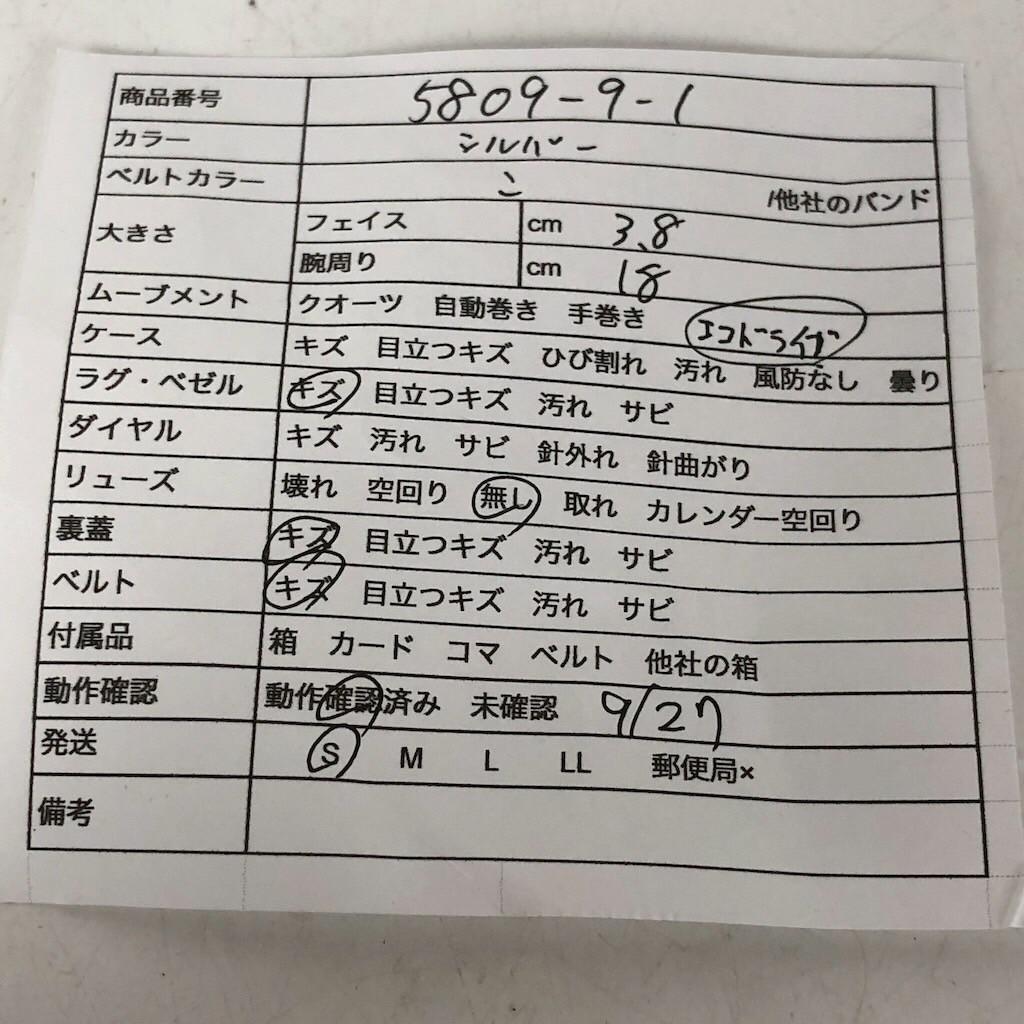 商品番号 5809-9-1
カラー シルバー
ベルトカラー 〃 /他社のバンド
大きさ フェイス cm 3.8
腕周り cm 18
ムーブメント クオーツ 自動巻き 手巻き エコドライブ
ケース キズ 目立つキズ ひび割れ 汚れ 風防なし 曇り
ラグ・ベゼル キズ 目立つキズ 汚れ サビ
ダイヤル キズ 汚れ サビ 針外れ 針曲がり
リューズ 壊れ 空回り 無し 取れ カレンダー空回り
裏蓋 キズ 目立つキズ 汚れ サビ
ベルト キズ 目立つキズ 汚れ サビ
付属品 箱 カード コマ ベルト 他社の箱
動作確認 動作確認済み 未確認 9/27
発送 S M L LL 郵便局×
備考